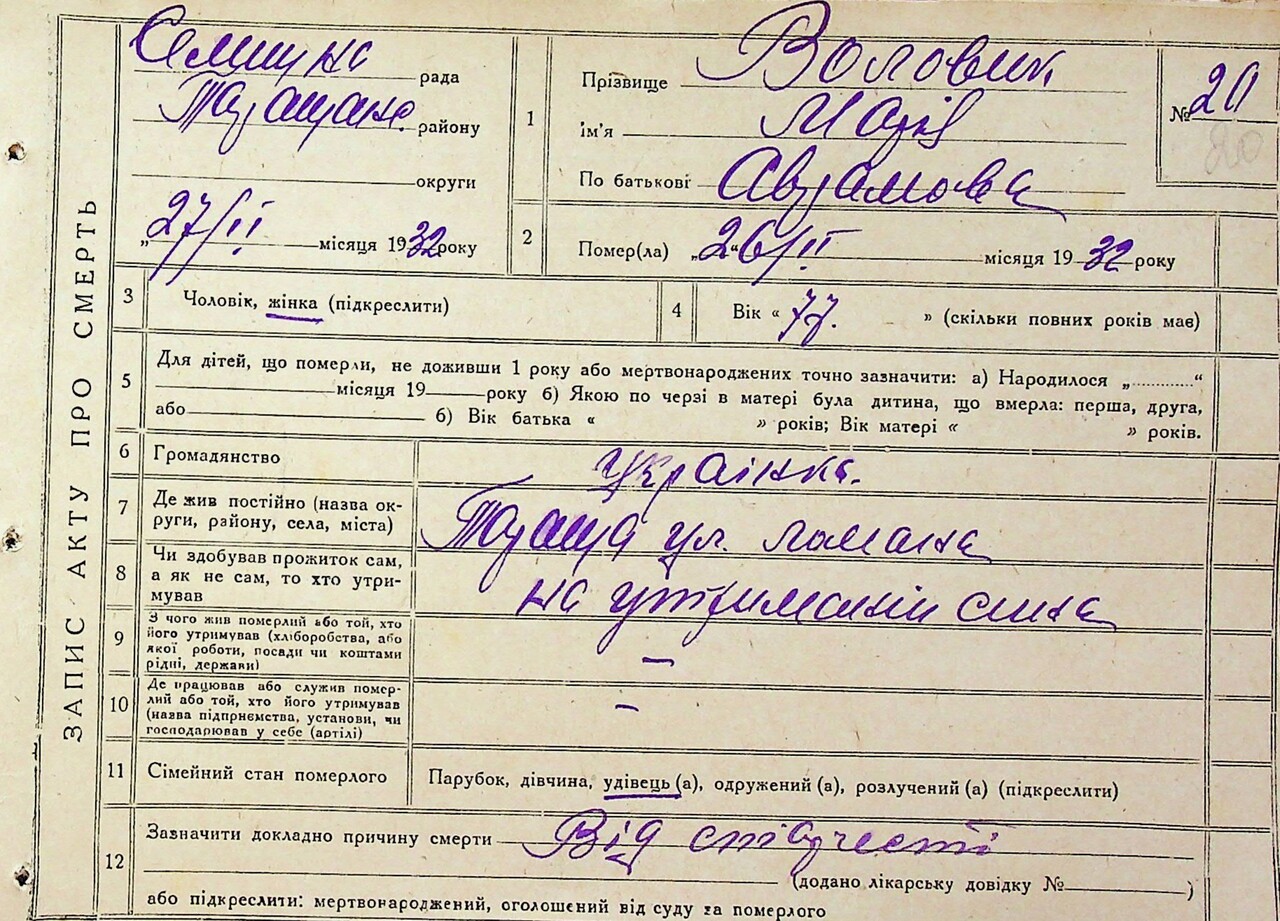 ЗАПИС АКТУ ПРО СМЕРТЬ
рада
Таращан. району
округи
„27/II місяця 1932 року
1
Прізвище Воловик
Ім'я Марія
По батькові Аврамовна
№ 20
20
2
Помер(ла) „26/II місяця 1932 року
3
Чоловік, жінка (підкреслити)
4
Вік « 77. » (скільки повних років має)
5
Для дітей, що померли, не доживши 1 року або мертвонароджених точно зазначити: а) Народилося „............“
місяця 19 року б) Якою по черзі в матері була дитина, що вмерла: перша, друга,
або б) Вік батька « » років; Вік матері « » років.
6
Громадянство
українка.
7
Де жив постійно (назва ок-
руги, району, села, міста)
Тараща ул.
8
Чи здобував прожиток сам,
а як не сам, то хто утри-
мував
на утриманій сина
9
З чого жив померлий або той, хто
його утримував (хліборобства, або
якої роботи, посади чи коштами
рідні, держави)
—
10
Де працював або служив помер-
лий або той, хто його утримував
(назва підприємства, установи, чи
господарював у себе (артілі)
—
11
Сімейний стан померлого
Парубок, дівчина, удівець (а), одружений (а), розлучений (а) (підкреслити)
12
Зазначити докладно причину смерти Від старчесті
(додано лікарську довідку № )
або підкреслити: мертвонароджений, оголошений від суду за померлого